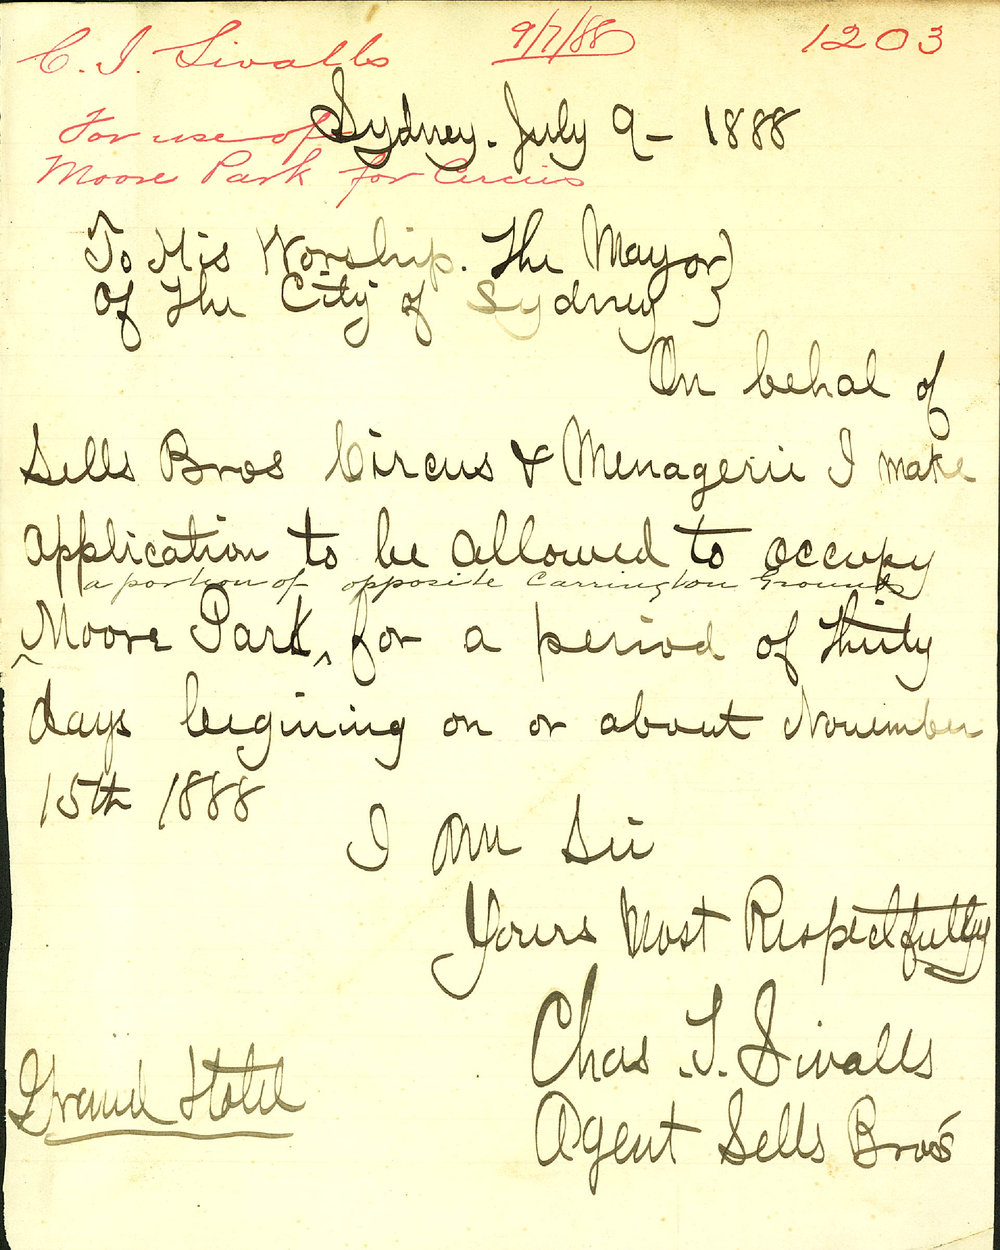 C. I. Sivalls 9/7/88 1203
Sydney. July 9 - 1888
For use of
Moore Park for Circus
To His Worship. The Mayor }
Of The City of Sydney }
On behal of
Sells Bros Circus & Menagerie I make
application to be allowed to occupy
a portion of opposite Carrington Grounds
^Moore Park^ for a period of thirty
days begining on or about November
15th 1888
I am Sir
Yours Most Respectfully
Chas. T. Sivalls
Agent Sells Bros
Grand Hotel